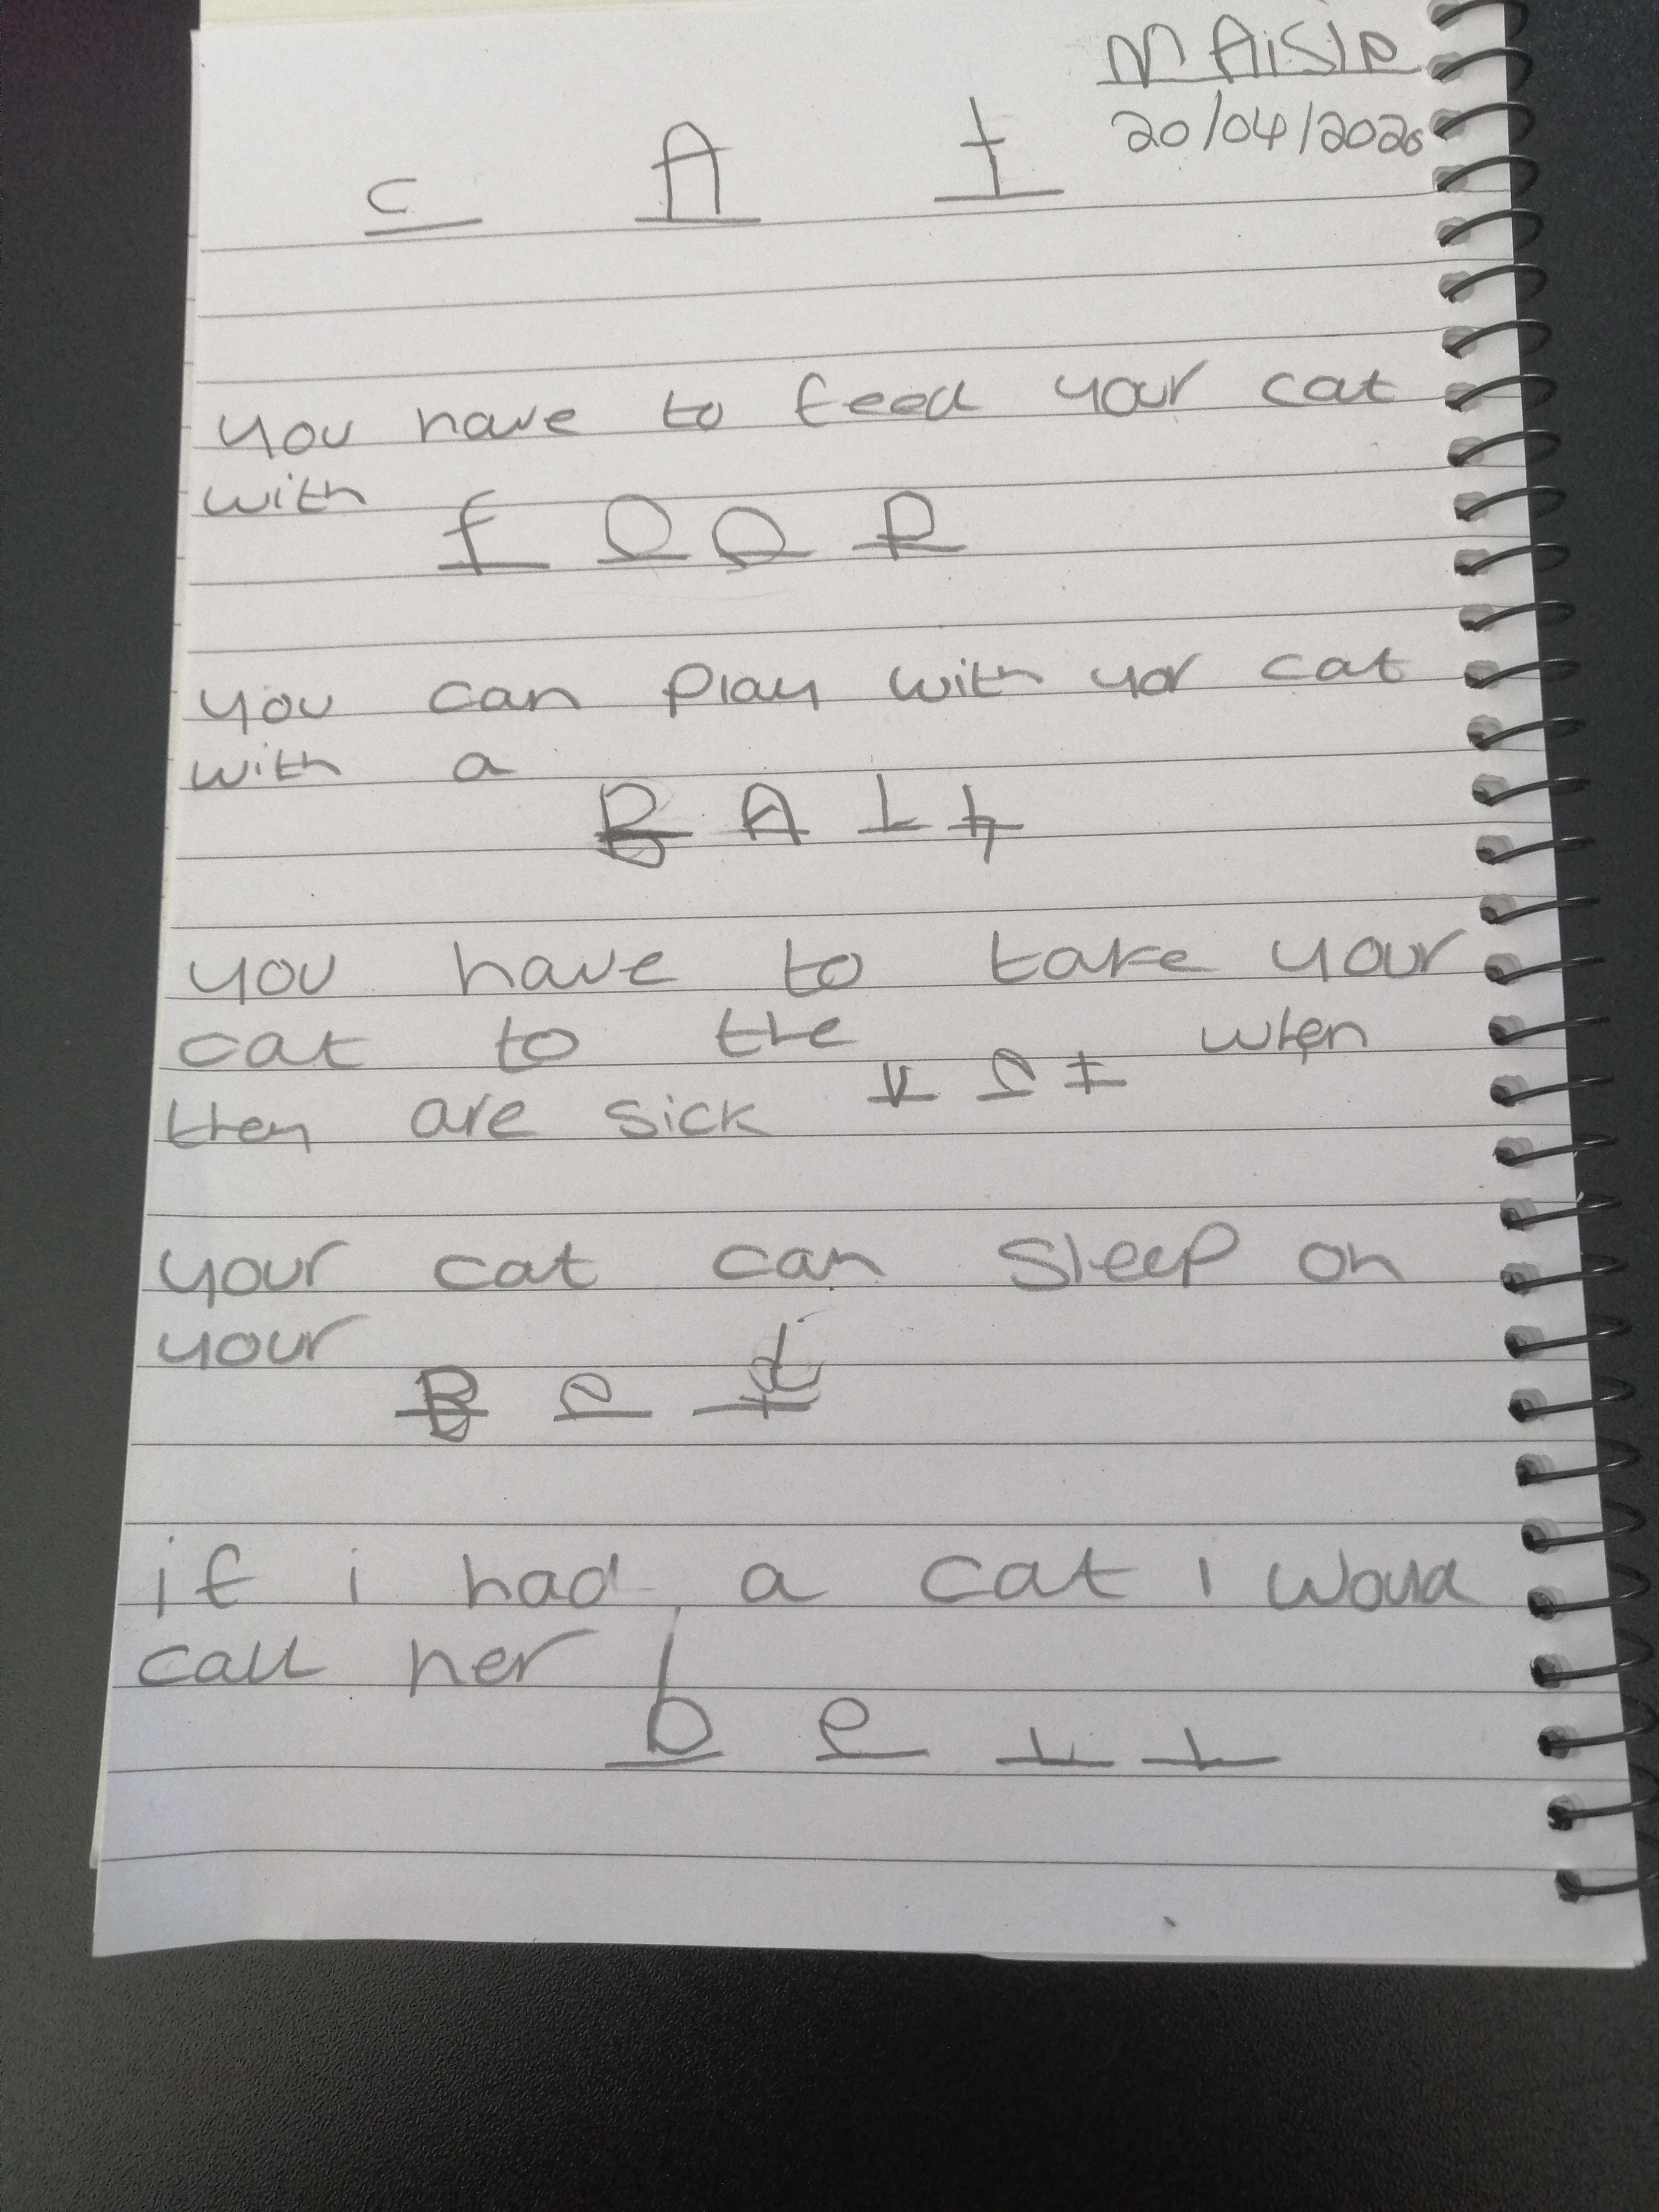 MAiSie
20/04/2020
c A t
you have to feed your cat
with
f o o D
you can play with yor cat
with a
B A L L
you have to take your
cat to the v e t when
they are sick
your cat can sleep on
your
B e d
if i had a cat i would
call her
b e L L